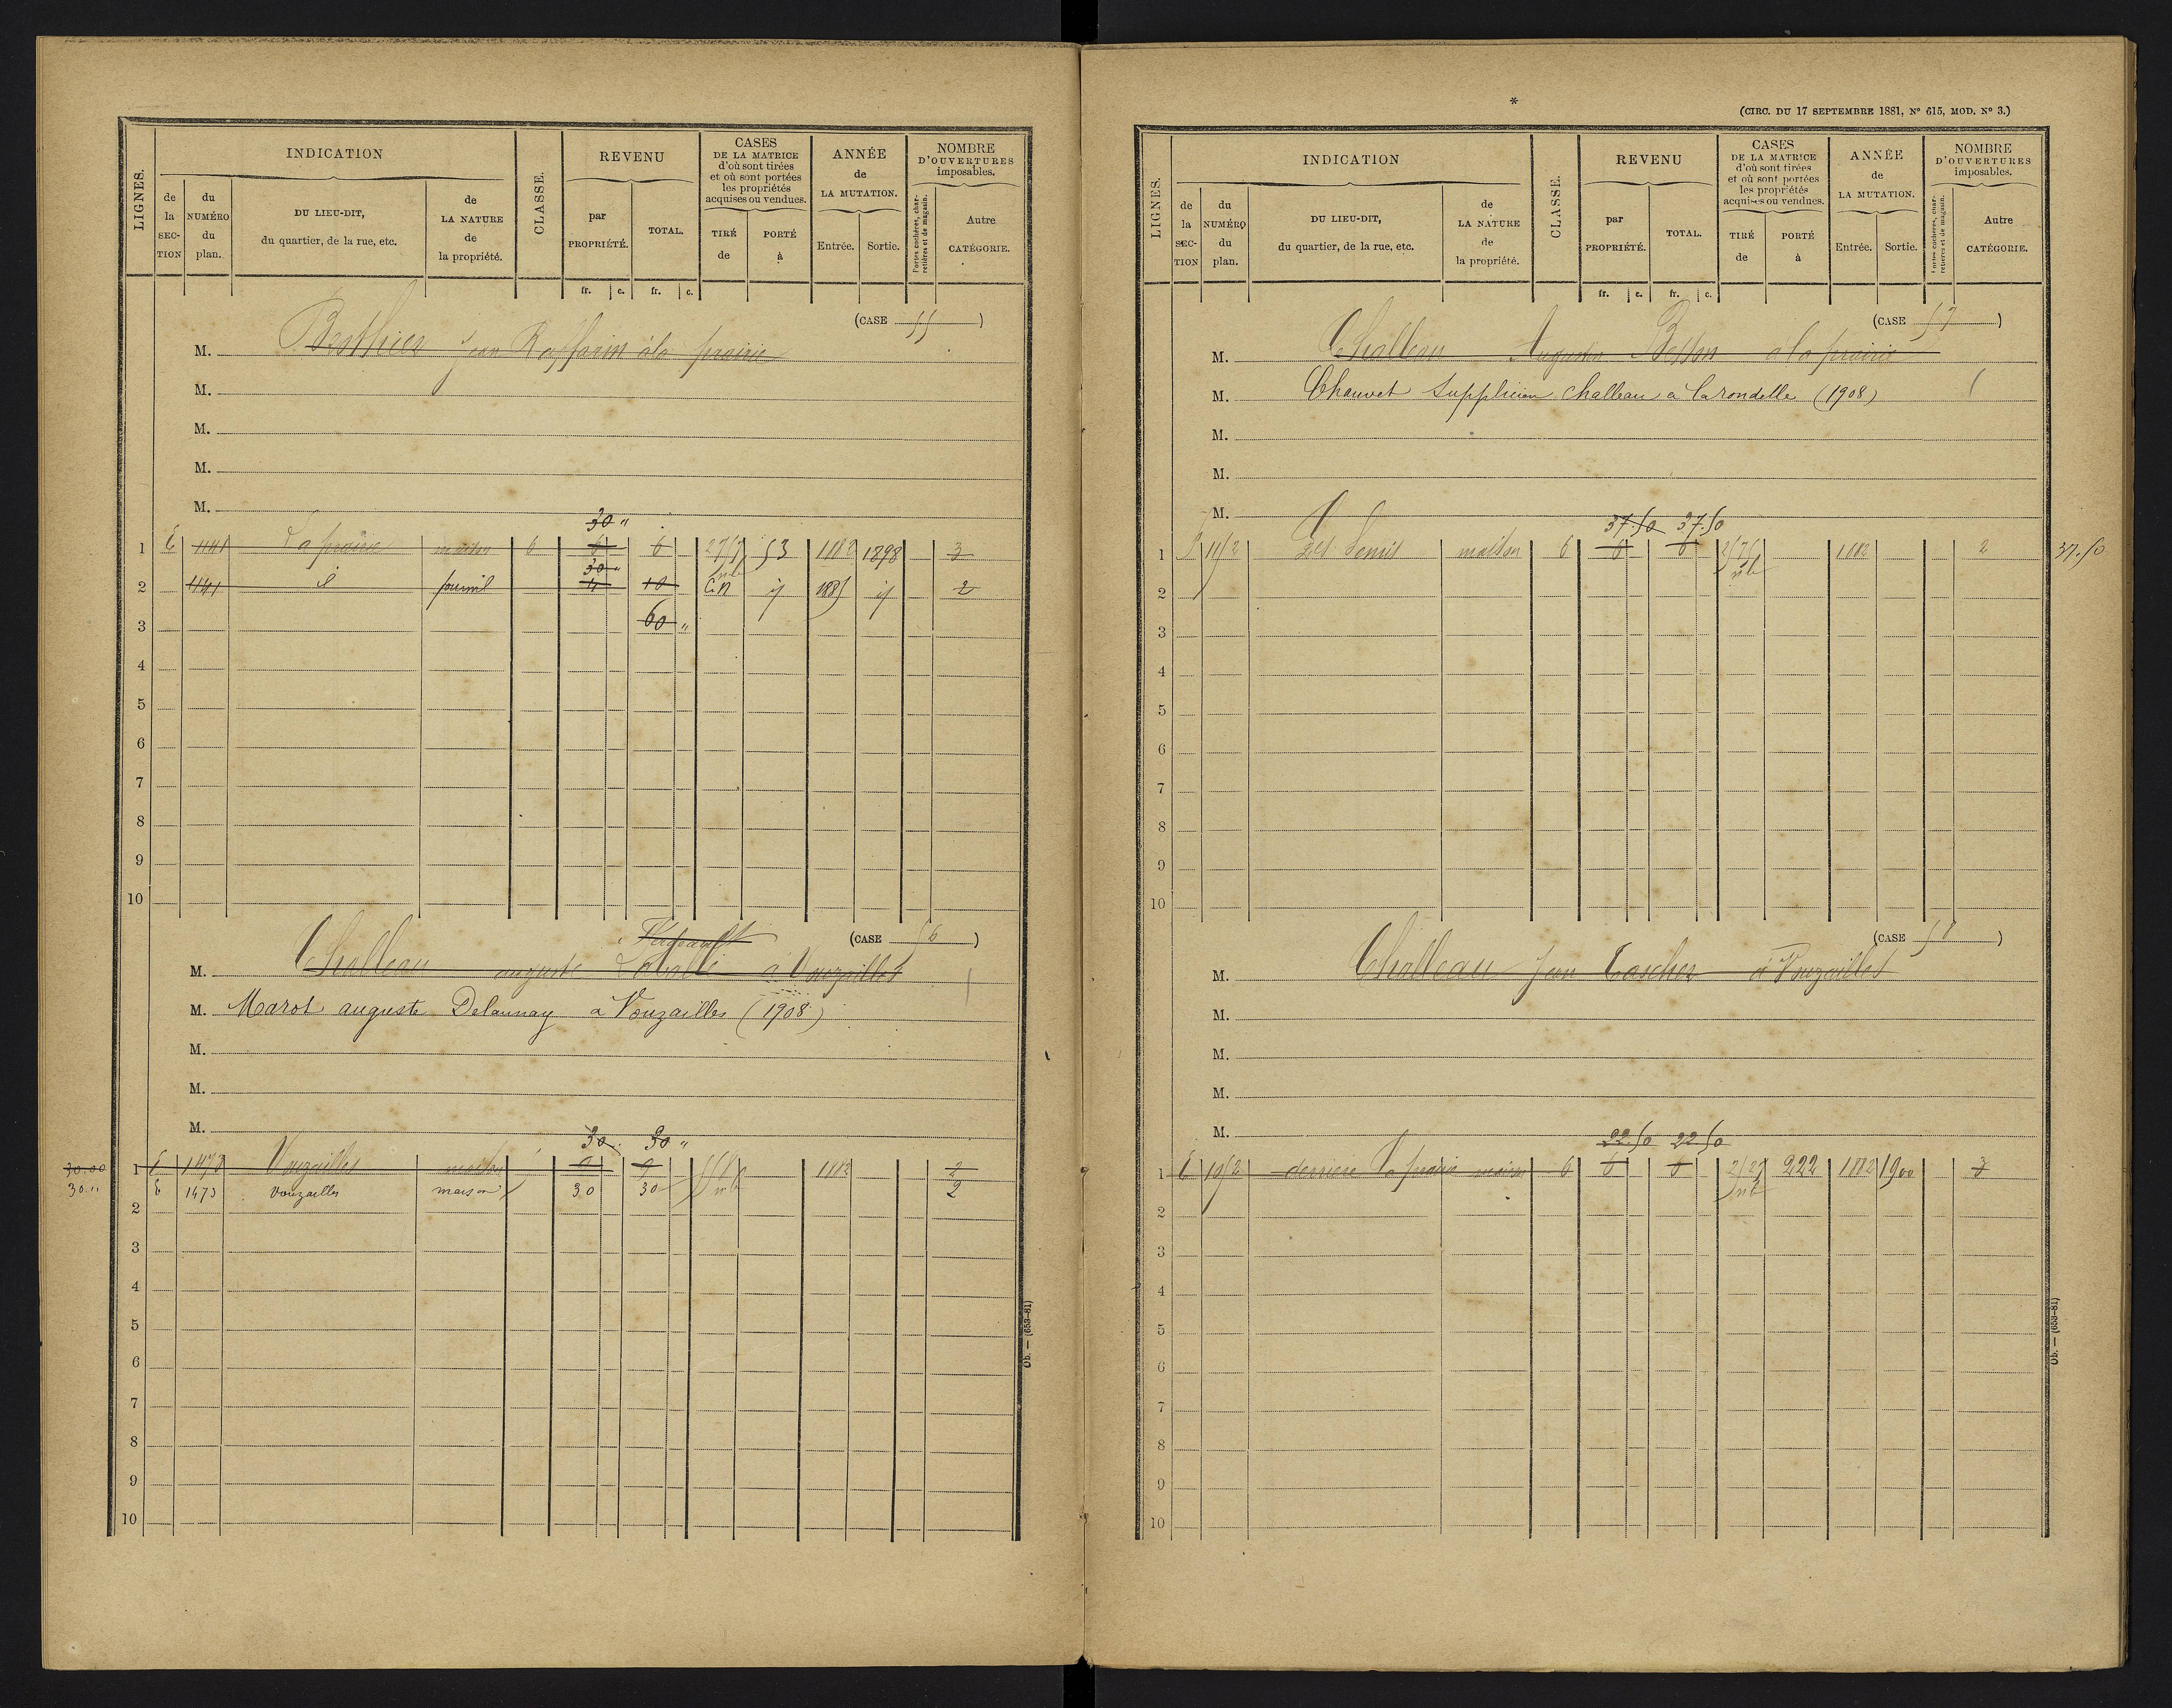 LIGNES.
INDICATION
de la SECTION
du NUMÉRO du plan.
DU LIEU-DIT, du quartier, de la rue, etc.
de LA NATURE de la propriété.
CLASSE.
REVENU
par PROPRIÉTÉ.
TOTAL.
CASES DE LA MATRICE d'où sont tirées et où sont portées les propriétés acquises ou vendues.
TIRÉ de
PORTÉ à
ANNÉE de LA MUTATION.
Entrée.
Sortie.
NOMBRE D'OUVERTURES imposables.
Portes cochères, charretières et de magasin.
Autre CATÉGORIE.
fr. c. fr. c.
(CASE 55)
M. Berthier Jean Raffarin à la prairie
M.
M.
M.
M.
30 "
1 E 1141 La prairie maison 6 6 6 53 1882 1898 3
30 "
2 1141 id fournil 4 10 C.N id 1885 id 2
3 60 "
4
5
6
7
8
9
10
(CASE 56)
M. Challeau auguste à Vouzailles
M. Marot auguste Delaunay a Vouzailles (1908)
M.
M.
M.
30 30 "
30.00 1 E 1473 Vouzailles maison 9 9 1882 2
30 " E 1473 Vouzailles maison 30 30 2
2
3
4
5
6
7
8
9
10
Ob. — (653-81)
*
(CIRC. DU 17 SEPTEMBRE 1881, N° 615, MOD. N° 3.)
LIGNES.
INDICATION
de la SECTION
du NUMÉRO du plan.
DU LIEU-DIT, du quartier, de la rue, etc.
de LA NATURE de la propriété.
CLASSE.
REVENU
par PROPRIÉTÉ.
TOTAL.
CASES DE LA MATRICE d'où sont tirées et où sont portées les propriétés acquises ou vendues.
TIRÉ de
PORTÉ à
ANNÉE de LA MUTATION.
Entrée.
Sortie.
NOMBRE D'OUVERTURES imposables.
Portes cochères, charretières et de magasin.
Autre CATÉGORIE.
fr. c. fr. c.
(CASE 57)
M. Challeau Augustin Besson a la prairie
M. Chauvet Supplicien Challeau a Larondelle (1908)
M.
M.
M.
37.50 37.50
1 1152 maison 6 6 6 1882 2 37.50
2
3
4
5
6
7
8
9
10
(CASE 58)
M. Challeau Jean Tascher à Vouzailles
M.
M.
M.
M.
22.50 22.50
1 E 1052 derriere La prairie maison 6 6 6 222 1882 1900 3
2
3
4
5
6
7
8
9
10
Ob. — (653-81)